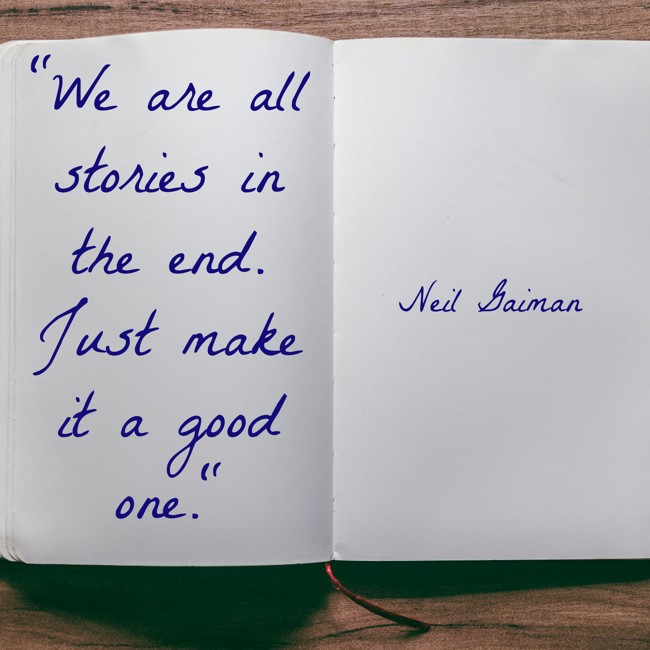 "We are all
stories in
the end.
Just make
it a good
one."
Neil Gaiman